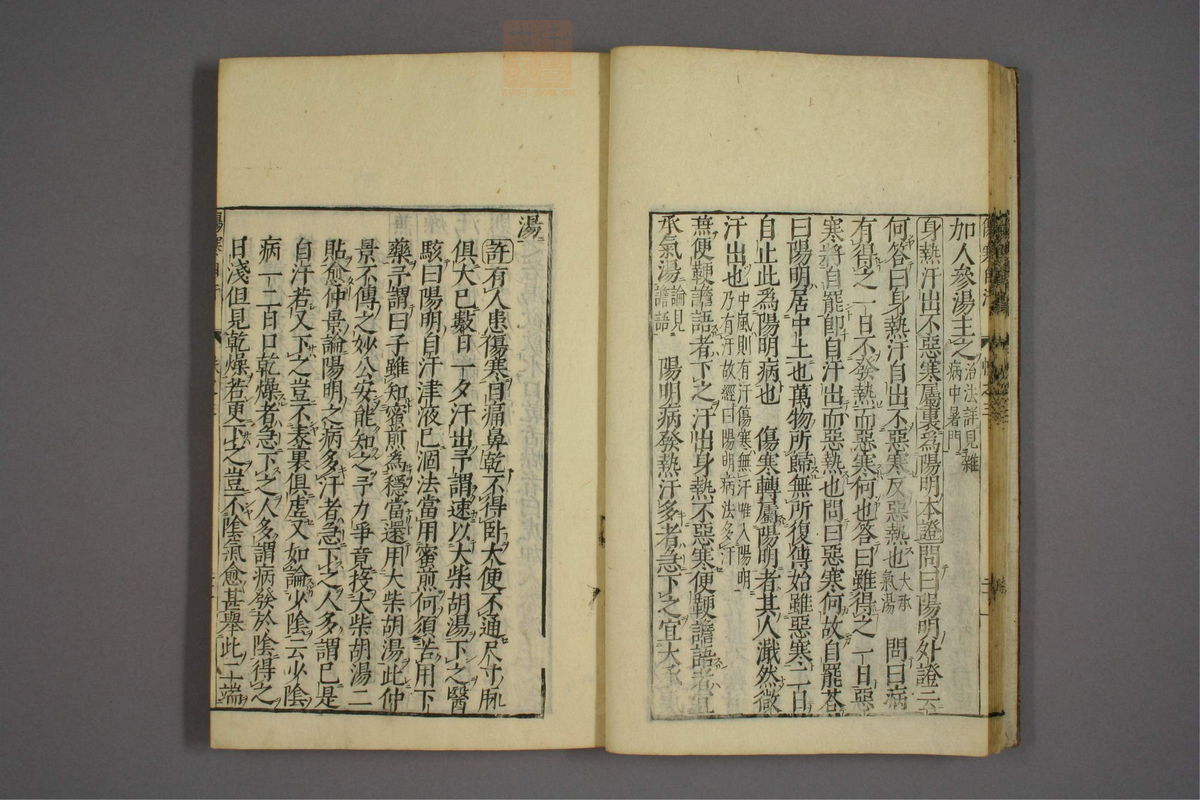 加人參湯主之治法詳見雜病中暑門
身熱汗出不惡寒屬裏爲陽明本證問曰陽明外證云
何答曰身熱汗自出不惡寒反惡熱也大承氣湯 問曰病
有得之一日不發熱而惡寒何也答曰雖得之一日惡
寒將自罷即自汗出而惡熱也問曰惡寒何故自罷荅
曰陽明居中土也萬物所歸無所復傳始雖惡寒二日
自止此爲陽明病也 傷寒轉屬陽明者其人濈然微
汗出也中風則有汗傷寒無汗唯入陽明乃有汗故經曰陽明病法多汗
無便鞕譫語者下之汗出身熱不惡寒便鞕譫語者宜
承氣湯論見譫語 陽明病發熱汗多者急下之宜大承
湯
許有人患傷寒目痛鼻乾不得卧大便不通尺寸脉
俱大已數日一夕汗出予謂速以大柴胡湯下之醫
駭曰陽明自汗津液已涸法當用蜜煎何須苦用下
藥予謂曰子雖知蜜煎為穩當還用大柴胡湯此仲
景不傳之妙公安能知之予力爭竟投大柴胡湯二
貼愈仲景論陽明之病多汗者急下之人多謂已是
自汗若又下之豈不表裏俱虛又如論少陰云少陰
病一二日口乾燥者急下之人多謂病發於陰得之
日淺但見乾燥若更下之豈不陰氣愈甚舉此二端